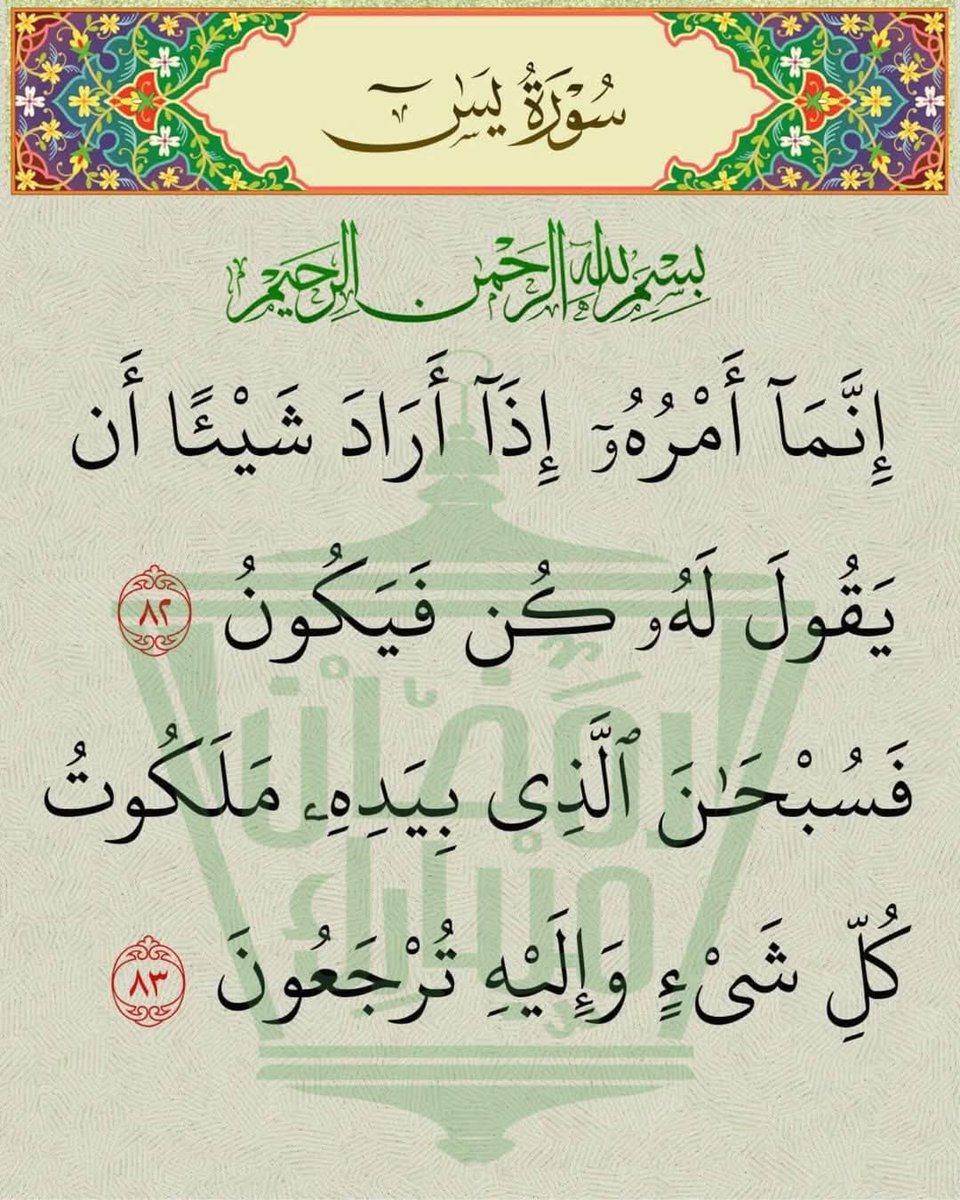 سُورَةُ يسٓ
بِسْمِ ٱللَّهِ ٱلرَّحْمَٰنِ ٱلرَّحِيمِ
إِنَّمَآ أَمْرُهُۥٓ إِذَآ أَرَادَ شَيْـًٔا أَن
يَقُولَ لَهُۥ كُن فَيَكُونُ ٨٢
فَسُبْحَـٰنَ ٱلَّذِى بِيَدِهِۦ مَلَكُوتُ
كُلِّ شَىْءٍ وَإِلَيْهِ تُرْجَعُونَ ٨٣
رَمَضَان
مبارك